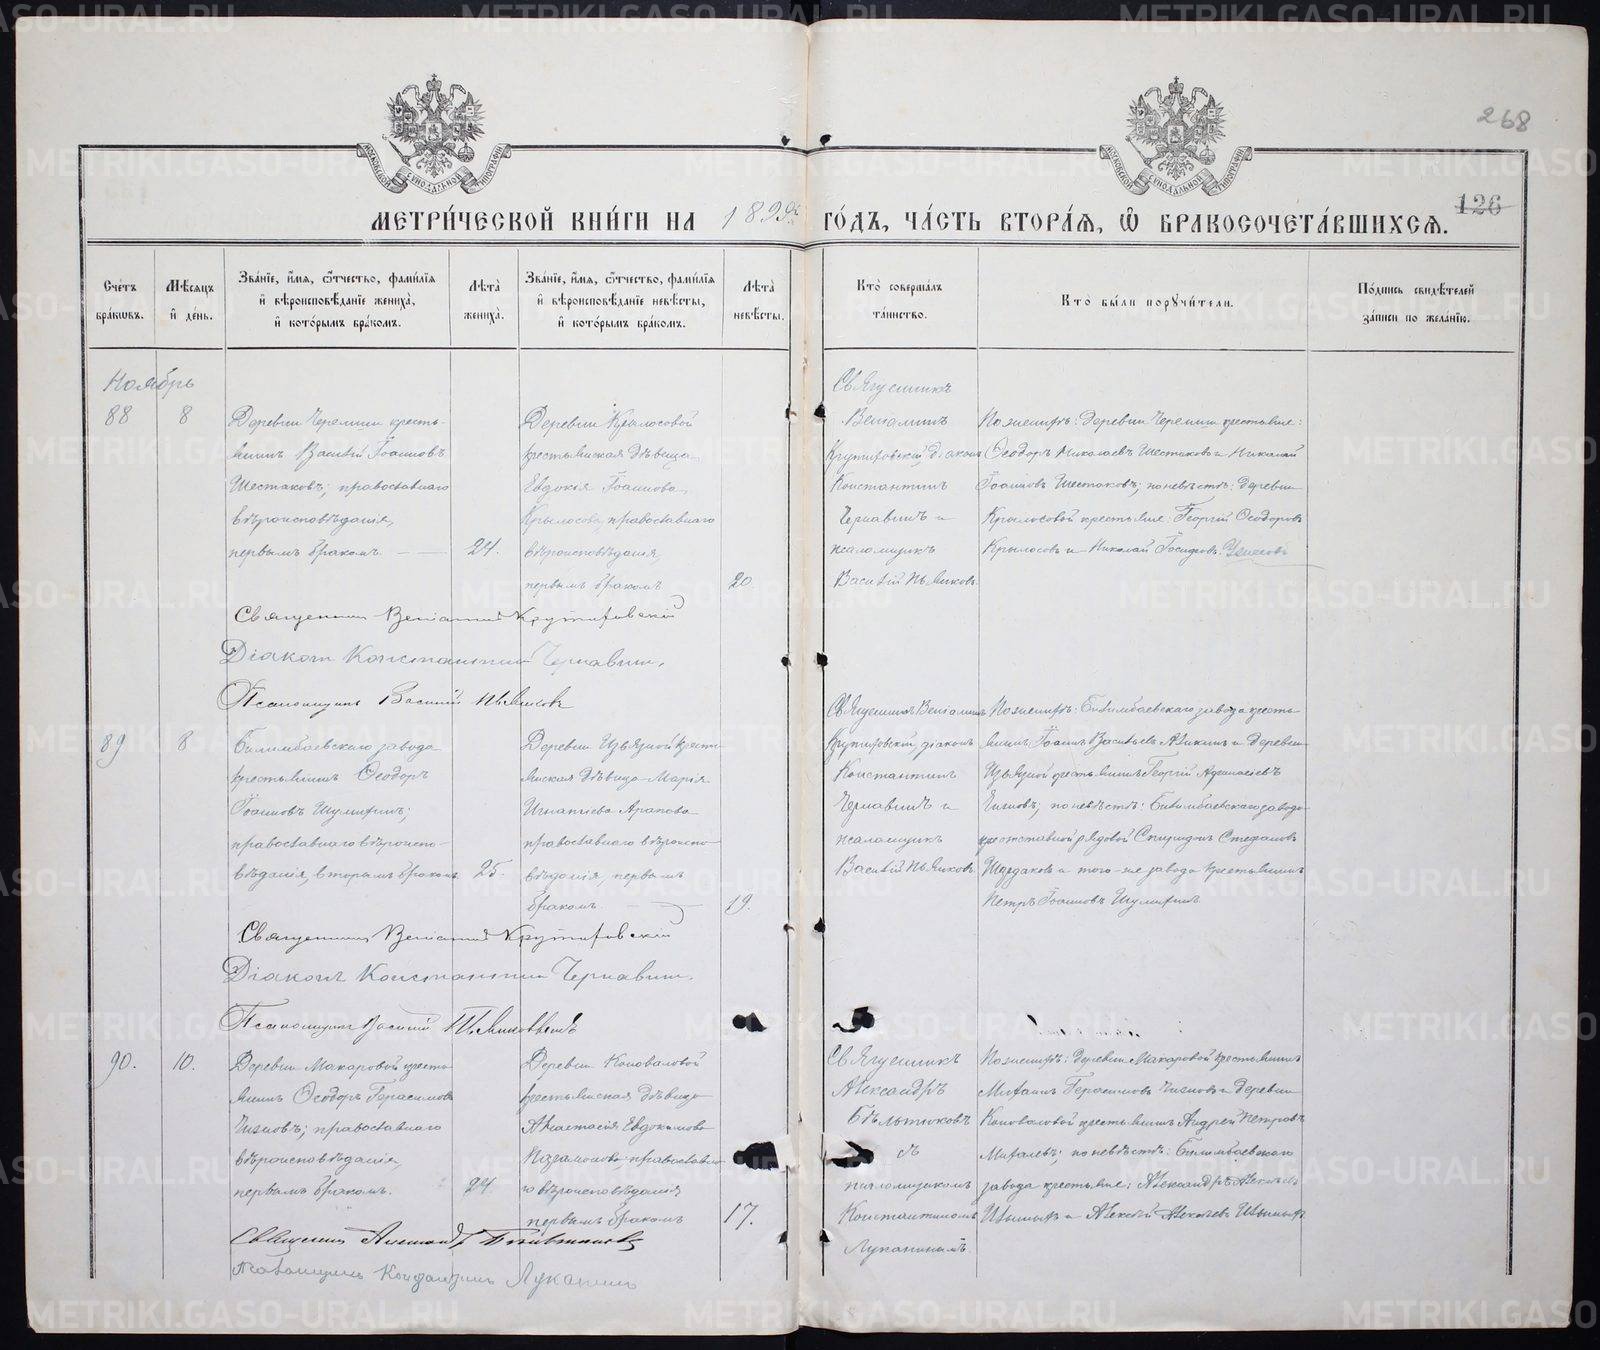 268
126
МОСКОВСКОЙ СѴНОДАЛЬНОЙ ТИПОГРАФІИ
МОСКОВСКОЙ СѴНОДАЛЬНОЙ ТИПОГРАФІИ
МЕТРИ́ЧЕСКОЙ КНИ́ГИ НА 1899й ГО́ДЪ, ЧА́СТЬ ВТОРА́Я, Ѿ БРАКОСОЧЕТА́ВШИХСЯ.
Сче́тъ
бра́ковъ.
Мѣ́сяцъ
и́ день.
Зва́нїе, и́мя, ѻ́тчество, фами́лїя
и́ вѣроисповѣ́данїе жениха̀,
и́ кото́рымъ бра́комъ.
Лѣ́та
жениха̀.
Зва́нїе, и́мя, ѻ́тчество, фами́лїя
и́ вѣроисповѣ́данїе невѣ́сты,
и́ кото́рымъ бра́комъ.
Лѣ́та
невѣ́сты.
Кто̀ соверша́лъ
та́инство.
Кто̀ бы́ли порꙋчи́тели.
По́дпись свидѣ́телей
за́писи по жела́нїю.
Ноябрь
88
8
Деревни Черемши кресть-
янинъ Василій Іоанновъ
Шестаковъ; православнаго
вѣроисповѣданія,
первымъ бракомъ.
24.
Деревни Крылосовой
крестьянская дѣвица
Евдокія Іоаннова
Крылосова, православнаго
вѣроисповѣданія,
первымъ бракомъ
20
Священникъ
Веніаминъ
Крутиховскій, діаконъ
Константинъ
Чернавинъ и
псаломщикъ
Василій Пьянковъ.
По женихѣ: Деревни Черемши крестьяне:
Ѳеодоръ Николаевъ Шестаковъ и Николай
Іоанновъ Шестаковъ; по невѣстѣ: Деревни
Крылосовой крестьяне: Георгій Ѳеодоровъ
Крылосовъ и Николай Іосифовъ
Священникъ Веніаминъ Крутиховскій
Діаконъ Константинъ Чернавинъ.
Псаломщикъ Василій Пьянковъ
89
8
Билимбаевскаго завода
крестьянинъ Ѳеодоръ
Іоанновъ Шумихинъ;
православнаго вѣроиспо-
вѣданія, вторымъ бракомъ
25.
Деревни Извязной кресть-
янская дѣвица Марія
Игнатіева Арапова
православнаго вѣроиспо-
вѣданія, первымъ
бракомъ.
19.
Священникъ Веніаминъ
Крутиховскій діаконъ
Константинъ
Чернавинъ и
псаломщикъ
Василій Пьянковъ.
По женихѣ: Билимбаевскаго завода кресть-
янинъ Іоаннъ Васильевъ Аликинъ и деревни
Извязной крестьянинъ Георгій Аѳанасіевъ
Чижовъ; по невѣстѣ: Билимбаевскаго завода
отставной рядовой Спиридонъ Стефановъ
Шардаковъ и того-же завода крестьянинъ
Петръ Іоанновъ Шумихинъ.
Священникъ Веніаминъ Крутиховскій
Діаконъ Константинъ Чернавинъ.
Псаломщикъ Василій Пьянковъ
90.
10.
Деревни Макаровой кресть-
янинъ Ѳеодоръ Герасимовъ
Чижовъ; православнаго
вѣроисповѣданія,
первымъ бракомъ.
24.
Деревни Коноваловой
крестьянская дѣвица
Анастасія Евдокимова
православна-
го вѣроисповѣданія
первымъ бракомъ
17.
Священникъ
Александръ
Бѣльтюковъ
съ
псаломщикомъ
Константиномъ
Луканинымъ.
По женихѣ: деревни Макаровой крестьянинъ
Михаилъ Герасимовъ Чижовъ и деревни
Коноваловой крестьянинъ Андрей Петровъ
Михалевъ; по невѣстѣ: Билимбаевскаго
завода крестьяне: Александръ Алексѣевъ
и Алексѣй Алексѣевъ
Священникъ Александръ Бѣльтюковъ
Псаломщикъ Константинъ Луканинъ
METRIKI.GASO-URAL.RU